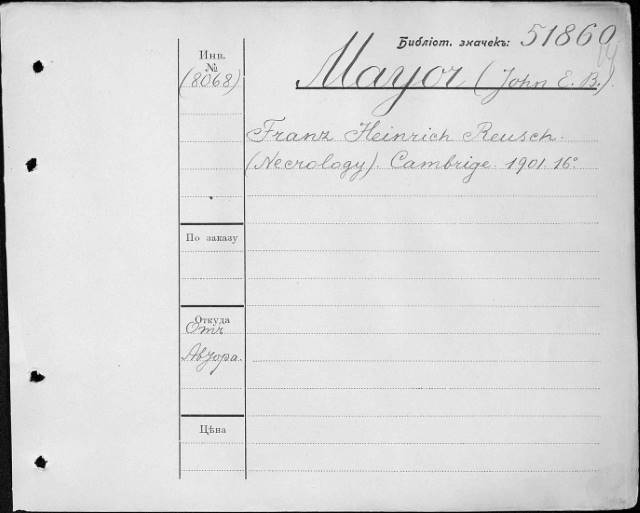 Библіот. значекъ: 51860
Инв.
№
(8068)
Mayor (John E. B.)
Franz Heinrich Reusch.
(Necrology). Cambrige. 1901. 16°.
По заказу
Откуда
Отъ
Автора.
Цѣна